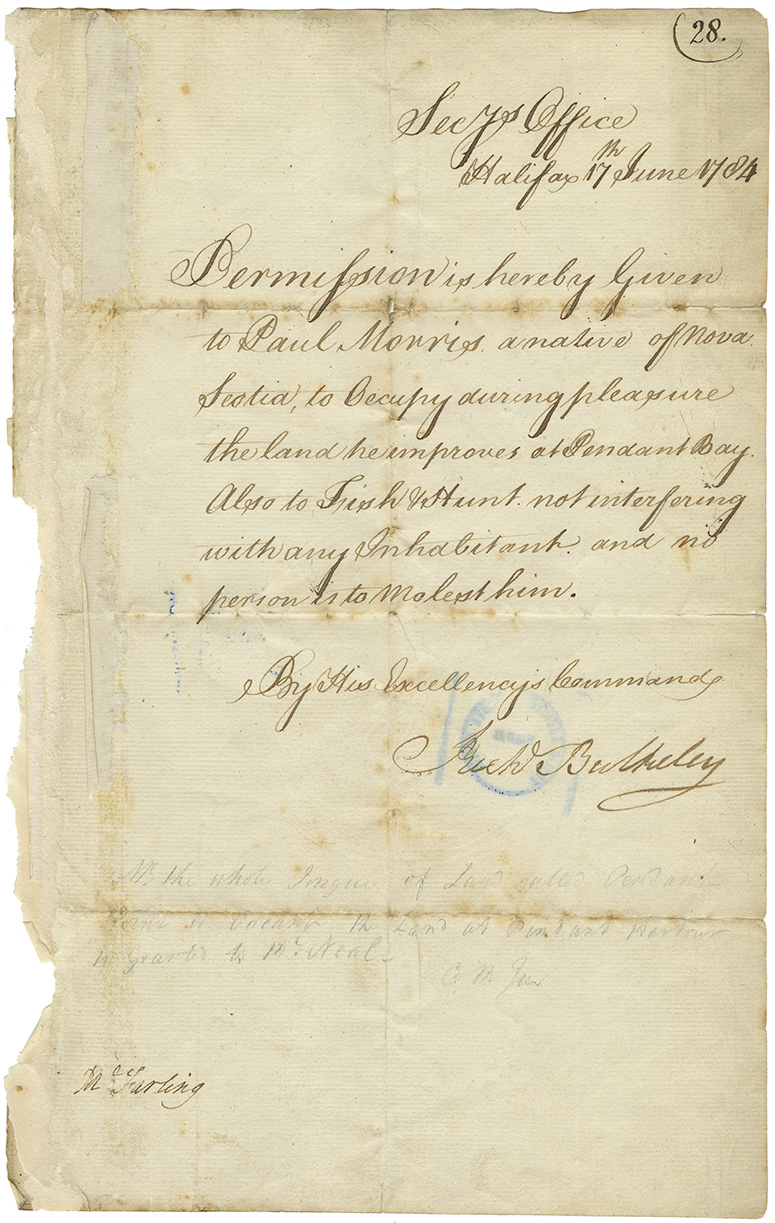 28.
Secys Office
Halifax 17th June 1784
Permission is hereby Given
to Paul Morris a native of Nova
Scotia, to Occupy during pleasure
the land he improves at Pendant Bay.
Also to Fish & Hunt. not interfering
with any Inhabitant. and no
person is to Molest him.
By His Excellency's Command
Richd Bulkeley
NB the whole Tongue of Land called Pendant
Point is Vacant the Land at Pendant Harbour
is granted to Mc Neal
C M Jur
Mc Farling